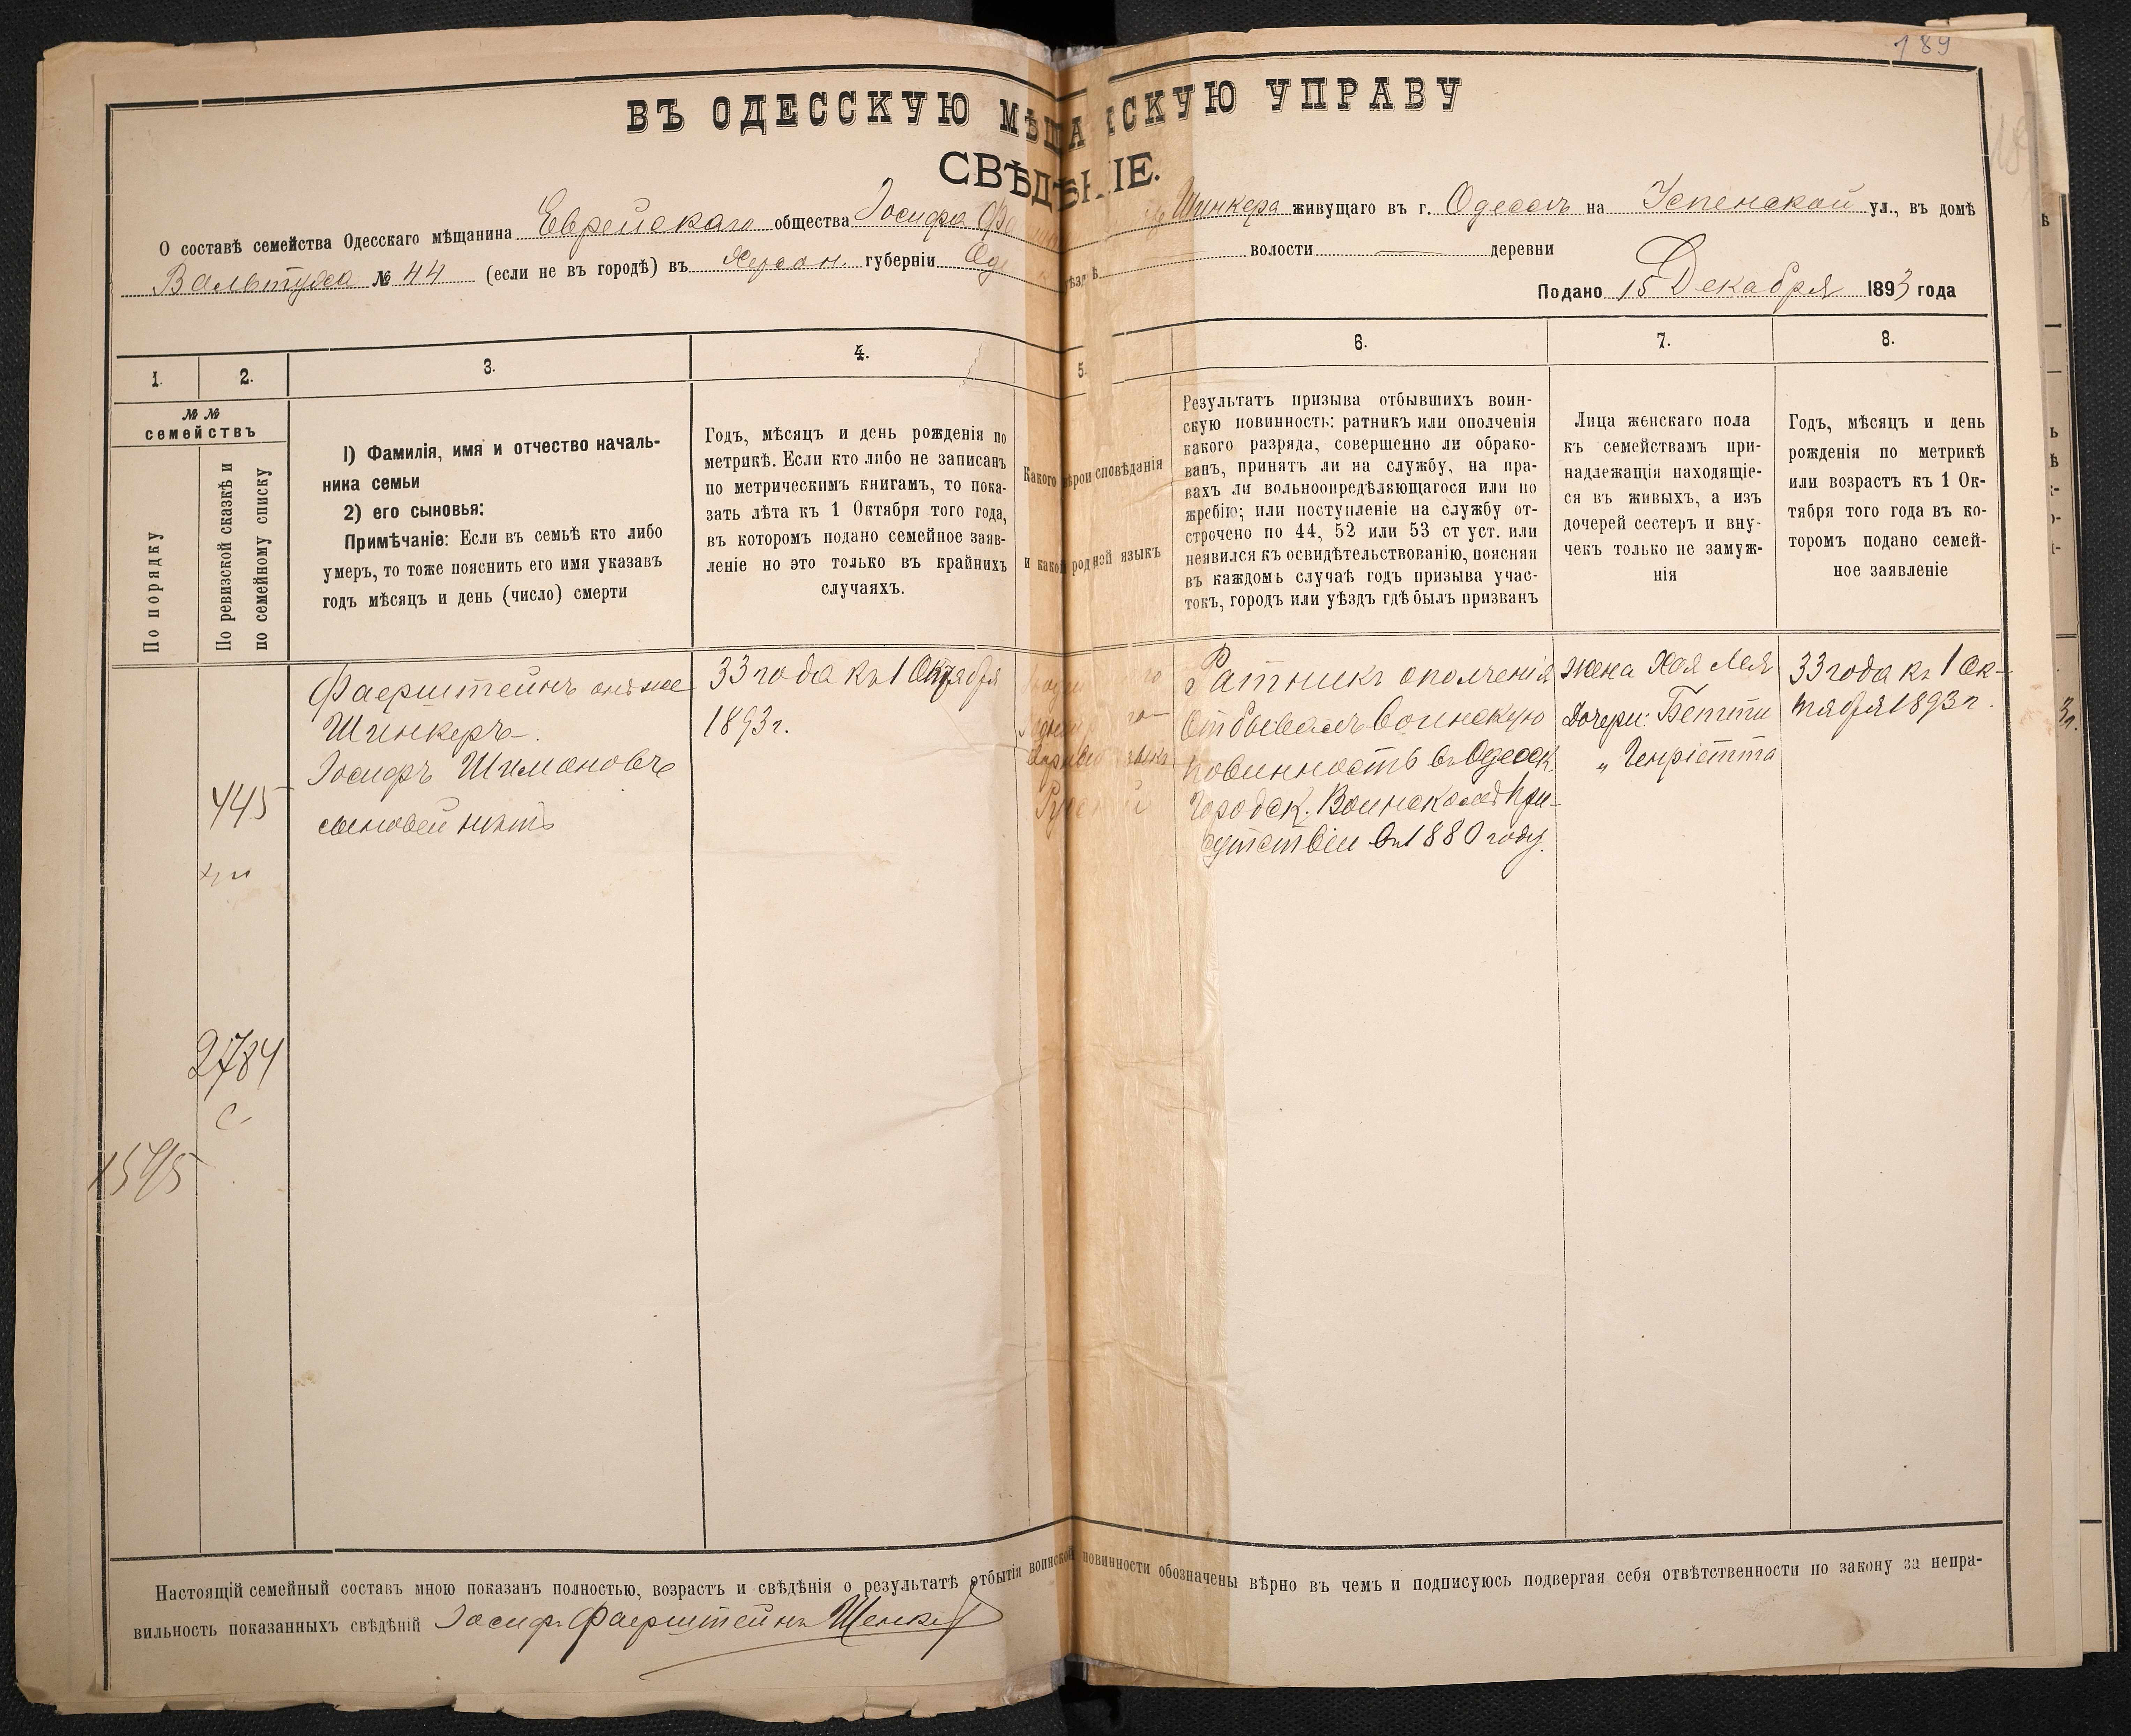 189
ВЪ ОДЕССКУЮ МѢЩА НСКУЮ УПРАВУ
СВѢДѢНІЕ.
О составѣ семейства Одесскаго мѣщанина Еврейскаго общества Іосифа Шинкера живущаго въ г. Одессѣ на Успенской ул., въ домѣ
Вальтуха № 44 (если не въ городѣ) въ Херсон. губерніи уѣздѣ волости деревни
Подано 15 Декабря 1893 года
1. 2. 3. 4. 5. 6. 7. 8.
№ №
семействъ
По порядку
По ревизской сказкѣ и
по семейному списку
1) Фамилія, имя и отчество началь-
ника семьи
2) его сыновья:
Примѣчаніе: Если въ семьѣ кто либо
умеръ, то тоже пояснить его имя указавъ
годъ мѣсяцъ и день (число) смерти
Годъ, мѣсяцъ и день рожденія по
метрикѣ. Если кто либо не записанъ
по метрическимъ книгамъ, то пока-
зать лѣта къ 1 Октября того года,
въ которомъ подано семейное заяв-
леніе но это только въ крайнихъ
случаяхъ.
Какого вѣроисповѣданія
и какой родной языкъ
Результатъ призыва отбывшихъ воин-
скую повинность: ратникъ или ополченія
какого разряда, совершенно ли обрако-
ванъ, принятъ ли на службу, на пра-
вахъ ли вольноопредѣляющагося или по
жребію; или поступленіе на службу от-
строчено по 44, 52 или 53 ст уст. или
неявился къ освидѣтельствованію, поясняя
въ каждомъ случаѣ годъ призыва учас-
токъ, городъ или уѣздъ гдѣ былъ призванъ
Лица женскаго пола
къ семействамъ при-
надлежащія находящіе-
ся въ живыхъ, а изъ
дочерей сестеръ и вну-
чекъ только не замуж-
нія
Годъ, мѣсяцъ и день
рожденія по метрикѣ
или возрастъ къ 1 Ок-
тября того года въ ко-
торомъ подано семей-
ное заявленіе
Фаерштейнъ онъ же
Шинкеръ.
Іосифъ Шимоновъ
сыновей нѣтъ
445
2784
1595
33 года къ 1 Октября
1893 г.
Ратникъ ополченія
Отбывалъ воинскую
повинность въ Одесск.
Городск. Воинскомъ При-
сутствіи въ 1880 году.
Жена Хая Лея
Дочери: Бетти
" Генріетта
33 года къ 1 Ок-
тября 1893 г.
Настоящій семейный составъ мною показанъ полностью, возрастъ и свѣдѣнія о результатѣ отбытія воинской повинности обозначены вѣрно въ чемъ и подписуюсь подвергая себя отвѣтственности по закону за непра-
вильность показанныхъ свѣдѣній Іосифъ Фаерштейнъ Шенкер